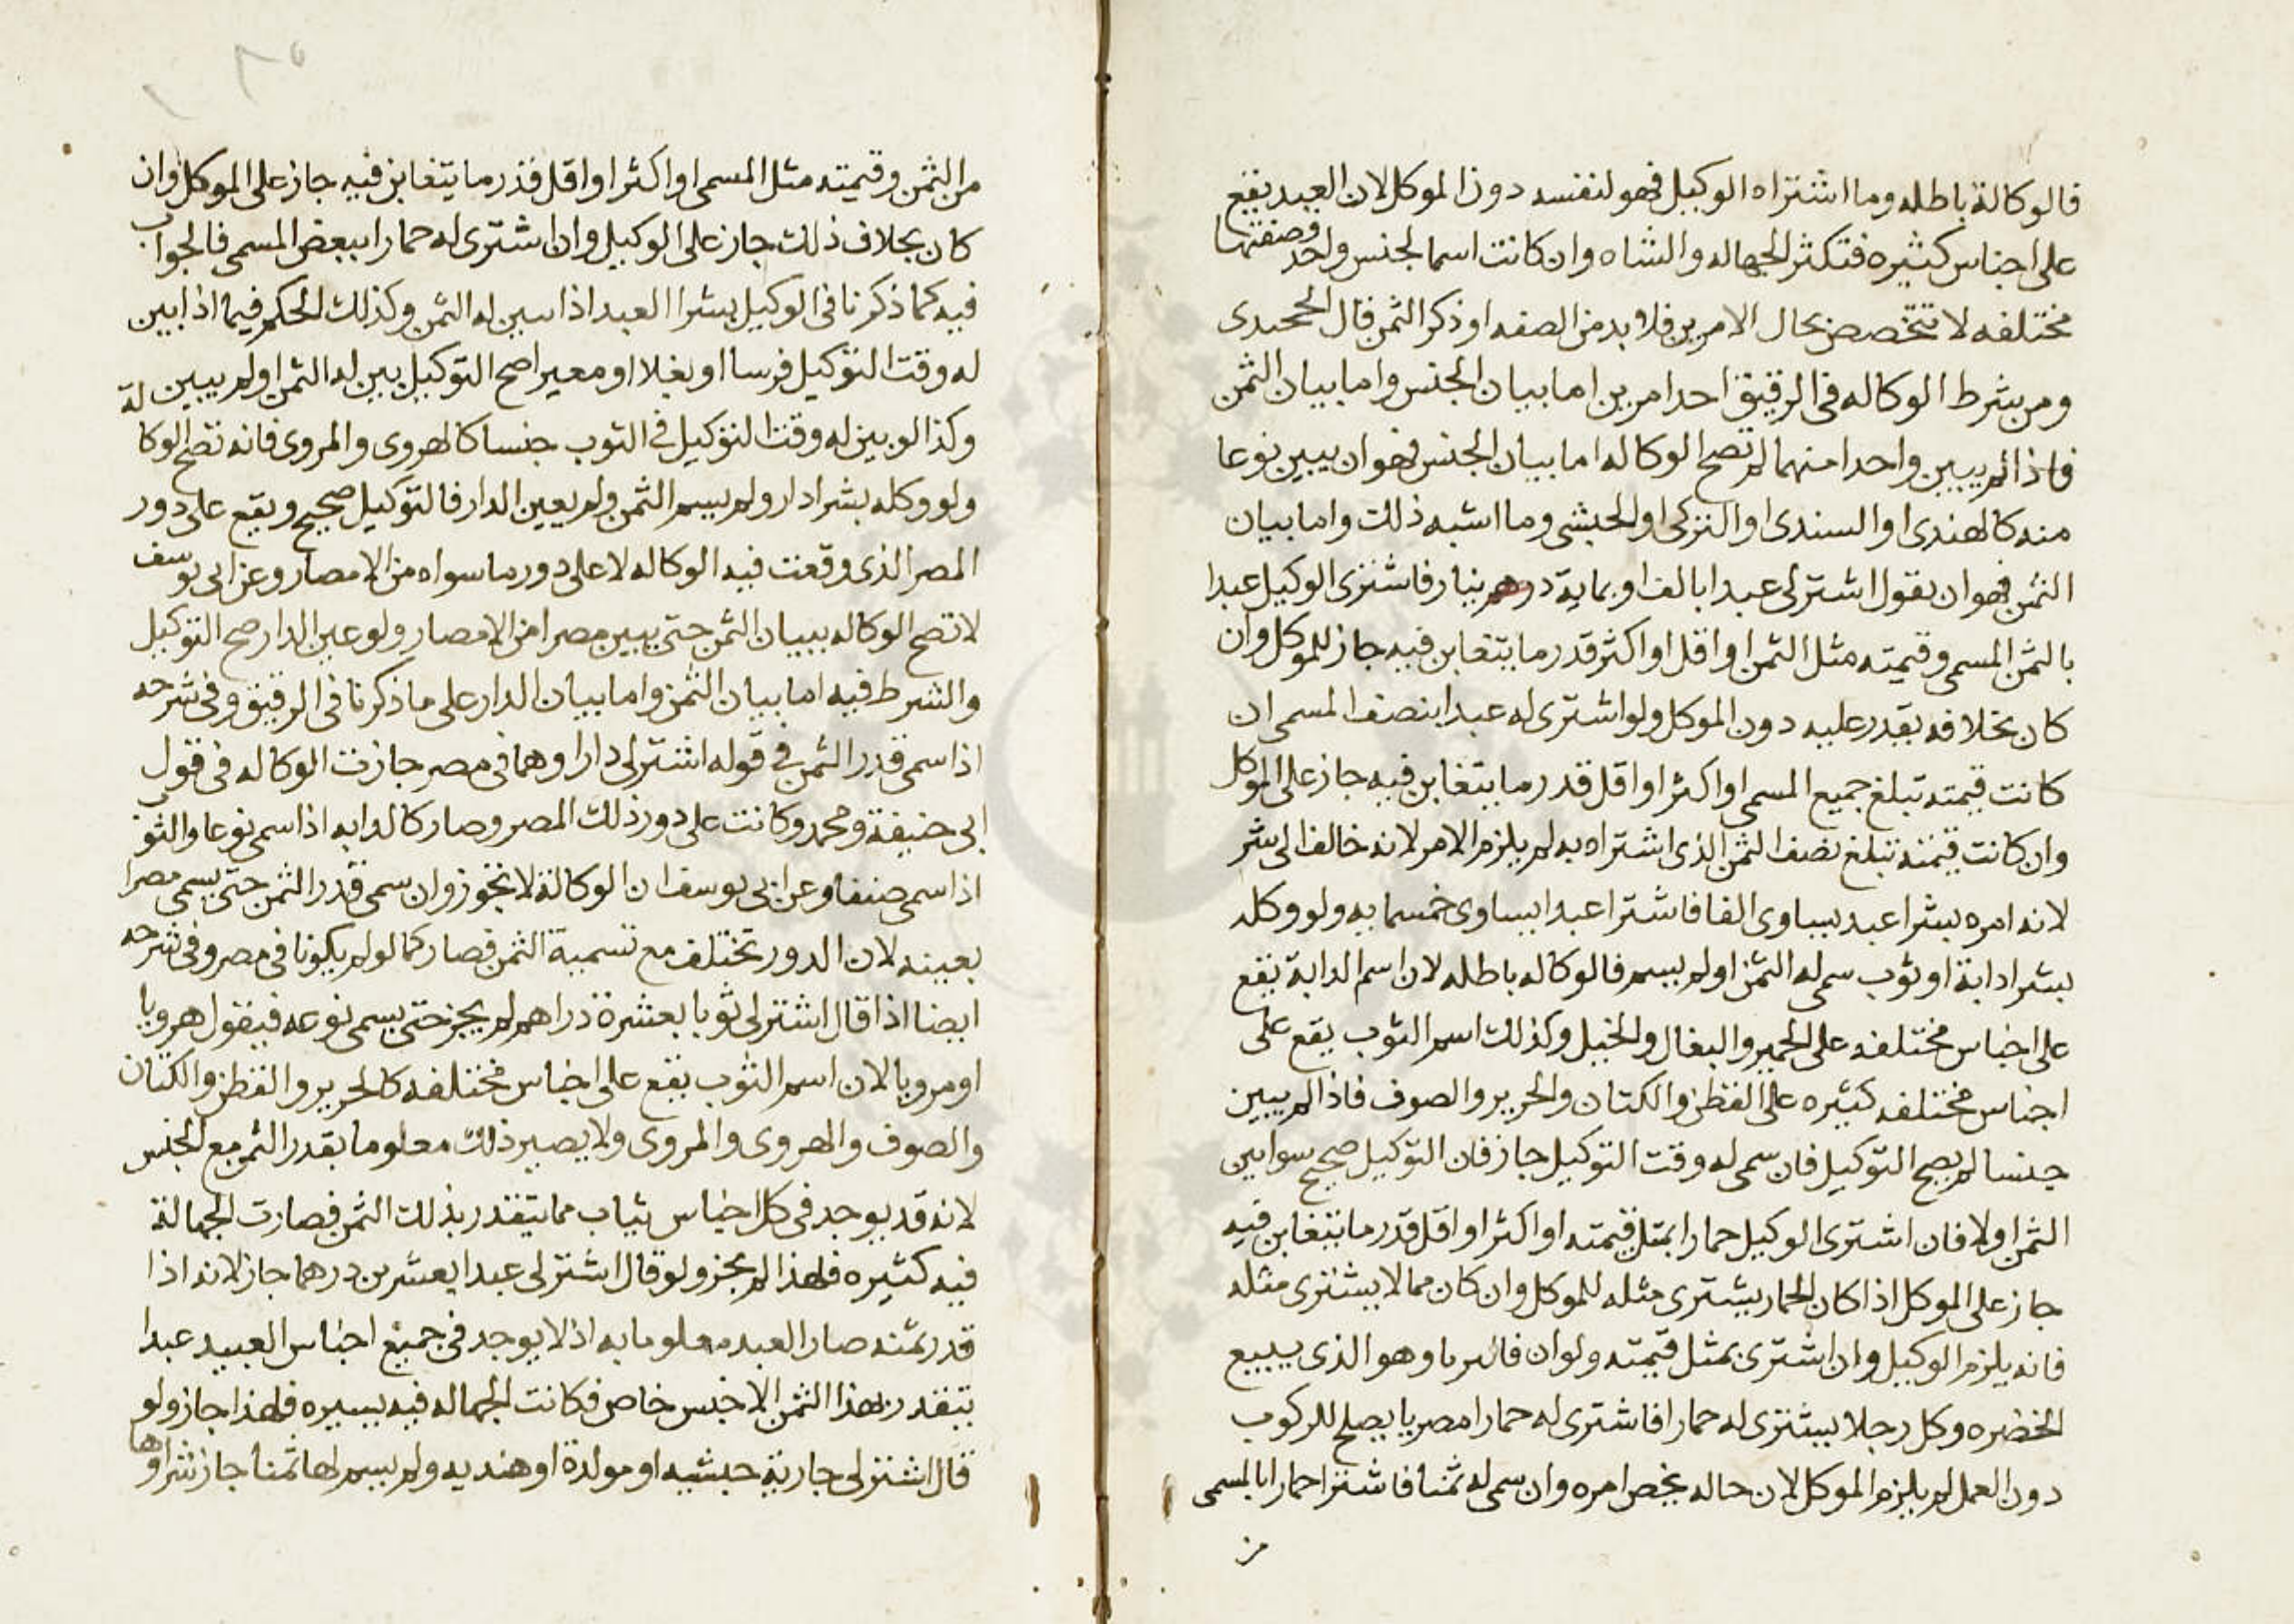 فالوكالة باطله وما اشتراه الوكيل فهو لنفسه دون الموكل لان العبد يقع
على اجناس كثيره فتكثر الجهاله والشاه وان كانت اسما لجنس واحد وصفتها
مختلفه لا تتخصص بحال الامرين فلا بد من الصفه او ذكر الثمن قال الخجندى
ومن شرط الوكاله فى الرقيق احد امرين اما بيان الجنس واما بيان الثمن
فاذا لم يبين واحدا منهما لم تصح الوكاله اما بيان الجنس فهو ان يبين نوعا
منه كالهندى او السندى او التركى او الحبشى وما اشبه ذلك واما بيان
الثمن فهو ان يقول اشتر لى عبدا بالف او بماية دينار فاشترى الوكيل عبدا
بالثمن المسمى وقيمته مثل الثمن او اقل او اكثر قدر ما يتغابن فيه جاز للموكل وان
كان بخلافه يقدر عليه دون الموكل ولو اشترى له عبدا بنصف المسمى ان
كانت قيمته تبلغ جميع المسمى او اكثر او اقل قدر ما يتغابن فيه جاز على الموكل
وان كانت قيمته تبلغ نصف الثمن الذى اشتراه به لم يلزم الامر لانه خالف الى شر
لانه امره بشرا عبد يساوى الفا فاشترا عبدا يساوى خمسمايه ولو وكله
بشرا دابة او ثوب سمى له الثمن او لم يسم فالوكاله باطله لان اسم الدابة يقع
على اجناس مختلفه على الحمير والبغال والخيل وكذلك اسم الثوب يقع على
اجناس مختلفه كثيره على القطن والكتان والحرير والصوف فاذا لم يبين
جنسا لم يصح التوكيل فان سمى له وقت التوكيل جاز فان التوكيل صحيح سوا بين
الثمن اولا فان اشترى الوكيل حمارا بمثل قيمته او اكثر او اقل قدر ما يتغابن فيه
جاز على الموكل اذا كان الحمار يشترى مثله للموكل وان كان مما لا يشترى مثله
فانه يلزم الوكيل وان اشترى بمثل قيمته ولو ان وهو الذى يبيع
الخضره وكل رجلا يشترى له حمارا فاشترى له حمارا مصريا يصلح للركوب
دون العمل لم يلزم الموكل لان حاله يخص امره وان سمى له ثمنا فاشترا حمارا بالمسمى
من
من الثمن وقيمته مثل المسمى او اكثر او اقل قدر ما يتغابن فيه جاز على الموكل وان
كان بخلاف ذلك جاز على الوكيل وان اشترى له حمارا ببعض المسمى فالجواب
فيه كما ذكرنا فى الوكيل بشرا العبد اذا بين له الثمن وكذلك الحكم فيما اذا بين
له وقت التوكيل فرسا او بغلا او معيرا صح التوكيل بين له الثمن او لم يبين له
وكذا لو بين له وقت التوكيل فى الثوب جنسا كالهروى والمروى فانه تصح الوكا
ولو وكله بشرا دار ولم يسم الثمن ولم يعين الدار فالتوكيل صحيح ويقع على دور
المصر الذى وقعت فيه الوكاله لا على دور ما سواه من الامصار وعن ابى يوسف
لا تصح الوكاله ببيان الثمن حتى يبين مصرا من الامصار ولو عين الدار صح التوكيل
والشرط فيه اما بيان الثمن واما بيان الدار على ما ذكرنا فى الرقيق وفى شرحه
اذا سمى قدر الثمن فى قوله اشتر لى دارا وهما فى مصر جازت الوكاله فى قول
ابى حنيفة ومحمد وكانت على دور ذلك المصر وصار كالدابه اذا سمى نوعا والثوب
اذا سمى صنفا وعن ابى يوسف ان الوكالة لا تجوز وان سمى قدر الثمن حتى يسمى مصرا
بعينه لان الدور تختلف مع تسمية الثمن فصار كما لو لم يكونا فى مصر وفى شرحه
ايضا اذا قال اشتر لى ثوبا بعشرة دراهم لم يجز حتى يسمى نوعه فيقول هرويا
او مرويا لان اسم الثوب يقع على اجناس مختلفه كالحرير والقطن والكتان
والصوف والهروى والمروى ولا يصير ذلك معلوما بقدر الثمن مع الجنس
لانه قد يوجد فى كل اجناس ثياب مما يتقدر بذلك الثمن فصارت الجهالة
فيه كثيره فلهذا لم يجز ولو قال اشتر لى عبدا بعشرين درهما جاز لانه اذا
قدر ثمنه صار العبد معلوما به اذ لا يوجد فى جميع اجناس العبيد عبدا
يتقدر بهذا الثمن الا جنس خاص فكانت الجهاله فيه يسيره فلهذا جاز ولو
قال اشتر لى جارية حبشيه او مولدة او هنديه ولم يسم لها ثمنا جاز شراوها